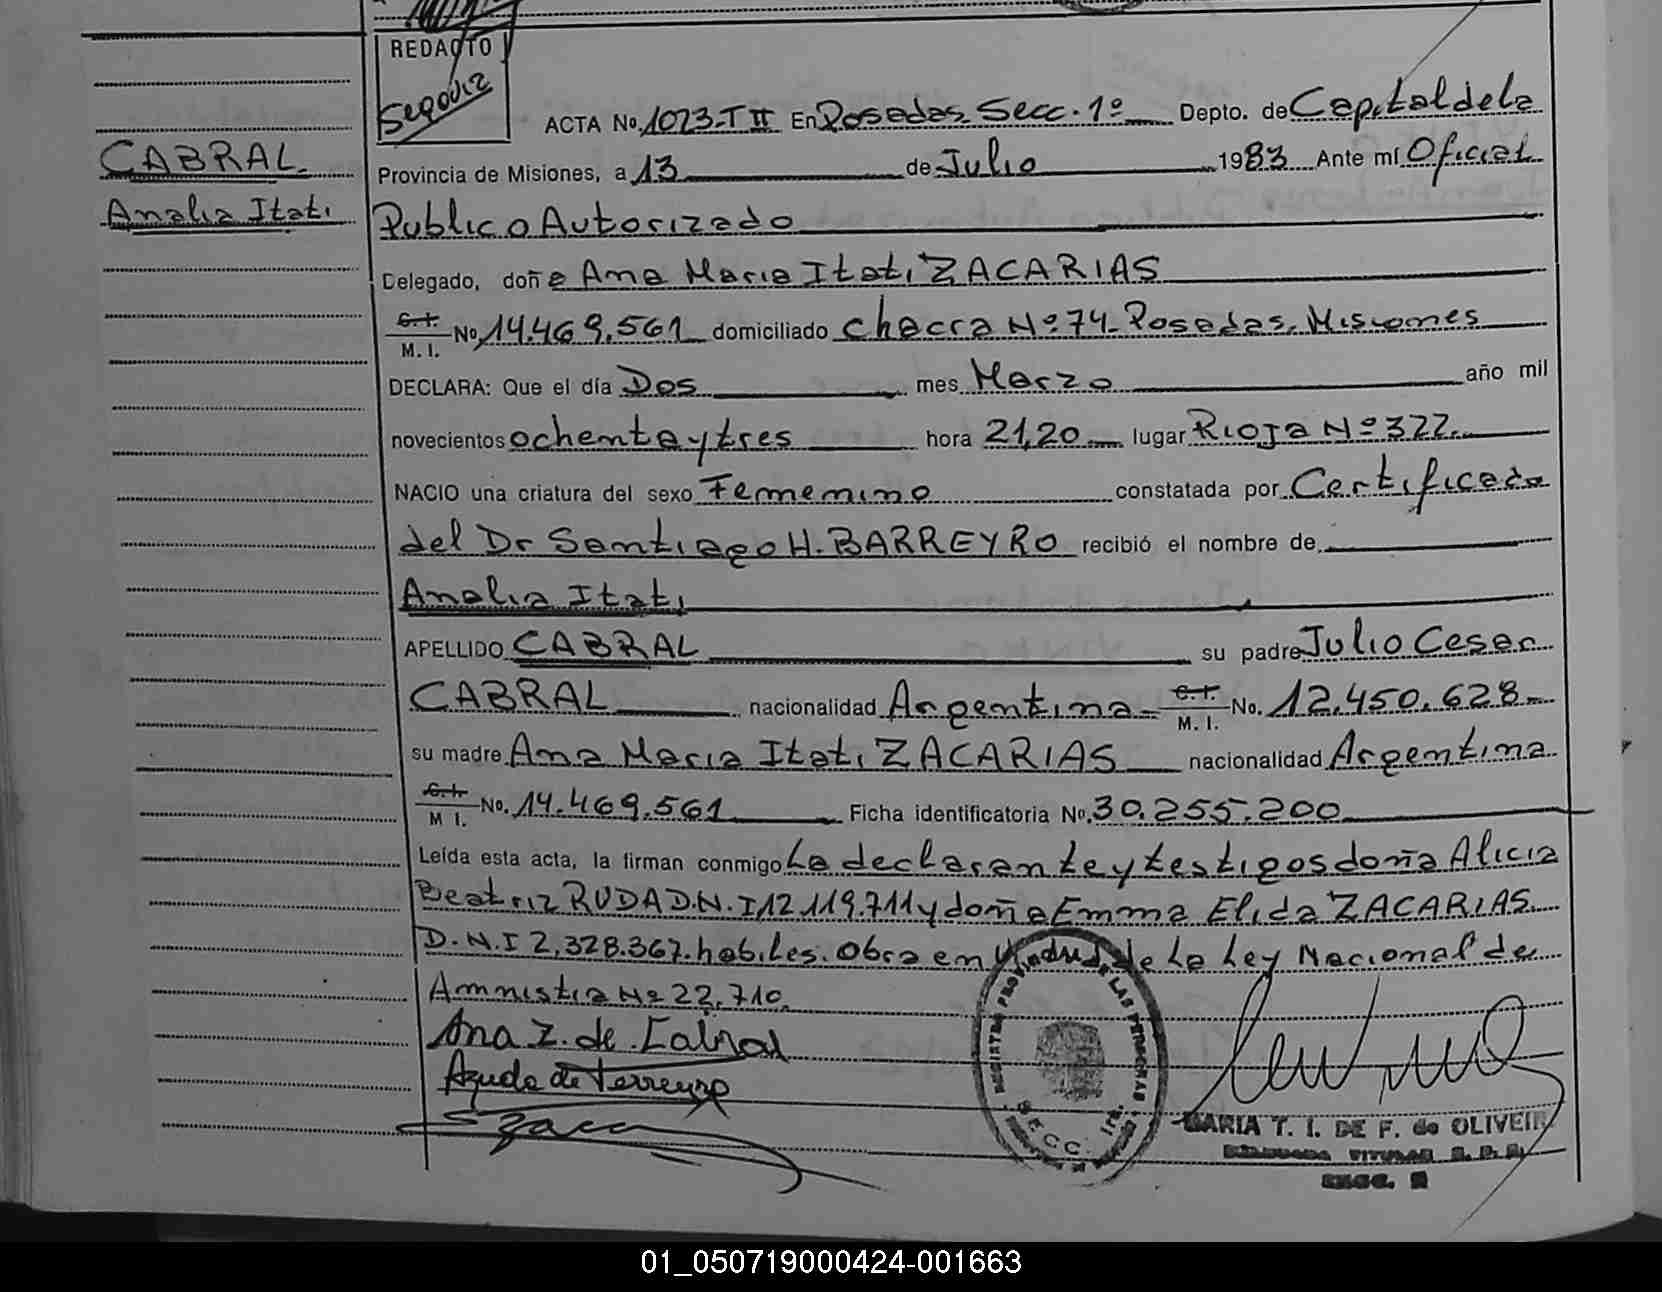 REDACTO
Segovia
ACTA No. 1023-T II En Posadas Secc. 1º Depto. de Capital de la
CABRAL
Provincia de Misiones, a 13 de Julio 1983 Ante mí Oficial
Analia Itati
Publico Autorizado
Delegado, doña Ana Maria Itati ZACARIAS
C. I.
M. I. No. 14.469.561 domiciliado Chacra Nº 74 - Posadas, Misiones
DECLARA: Que el día Dos mes Marzo año mil
novecientos ochenta y tres hora 21,20 lugar Rioja Nº 322.
NACIO una criatura del sexo Femenino constatada por Certificado
del Dr Santiago H. BARREYRO recibió el nombre de
Analia Itati
APELLIDO CABRAL su padre Julio Cesar
CABRAL nacionalidad Argentina C. I.
M. I. No. 12.450.628
su madre Ana Maria Itati ZACARIAS nacionalidad Argentina
C. I.
M I. No. 14.469.561 Ficha identificatoria Nº. 30.255.200
Leída esta acta, la firman conmigo La declarante y testigos doña Alicia
Beatriz RUDA D.N.I 12.119.711 y doña Emma Elida ZACARIAS
D.N.I 2,328.367. habiles. Obra en Virtud de la Ley Nacional de
Amnistia Nº 22.710.
Ana Z. de Cabral
MARIA T. I. DE F. de OLIVEIR
01_050719000424-001663